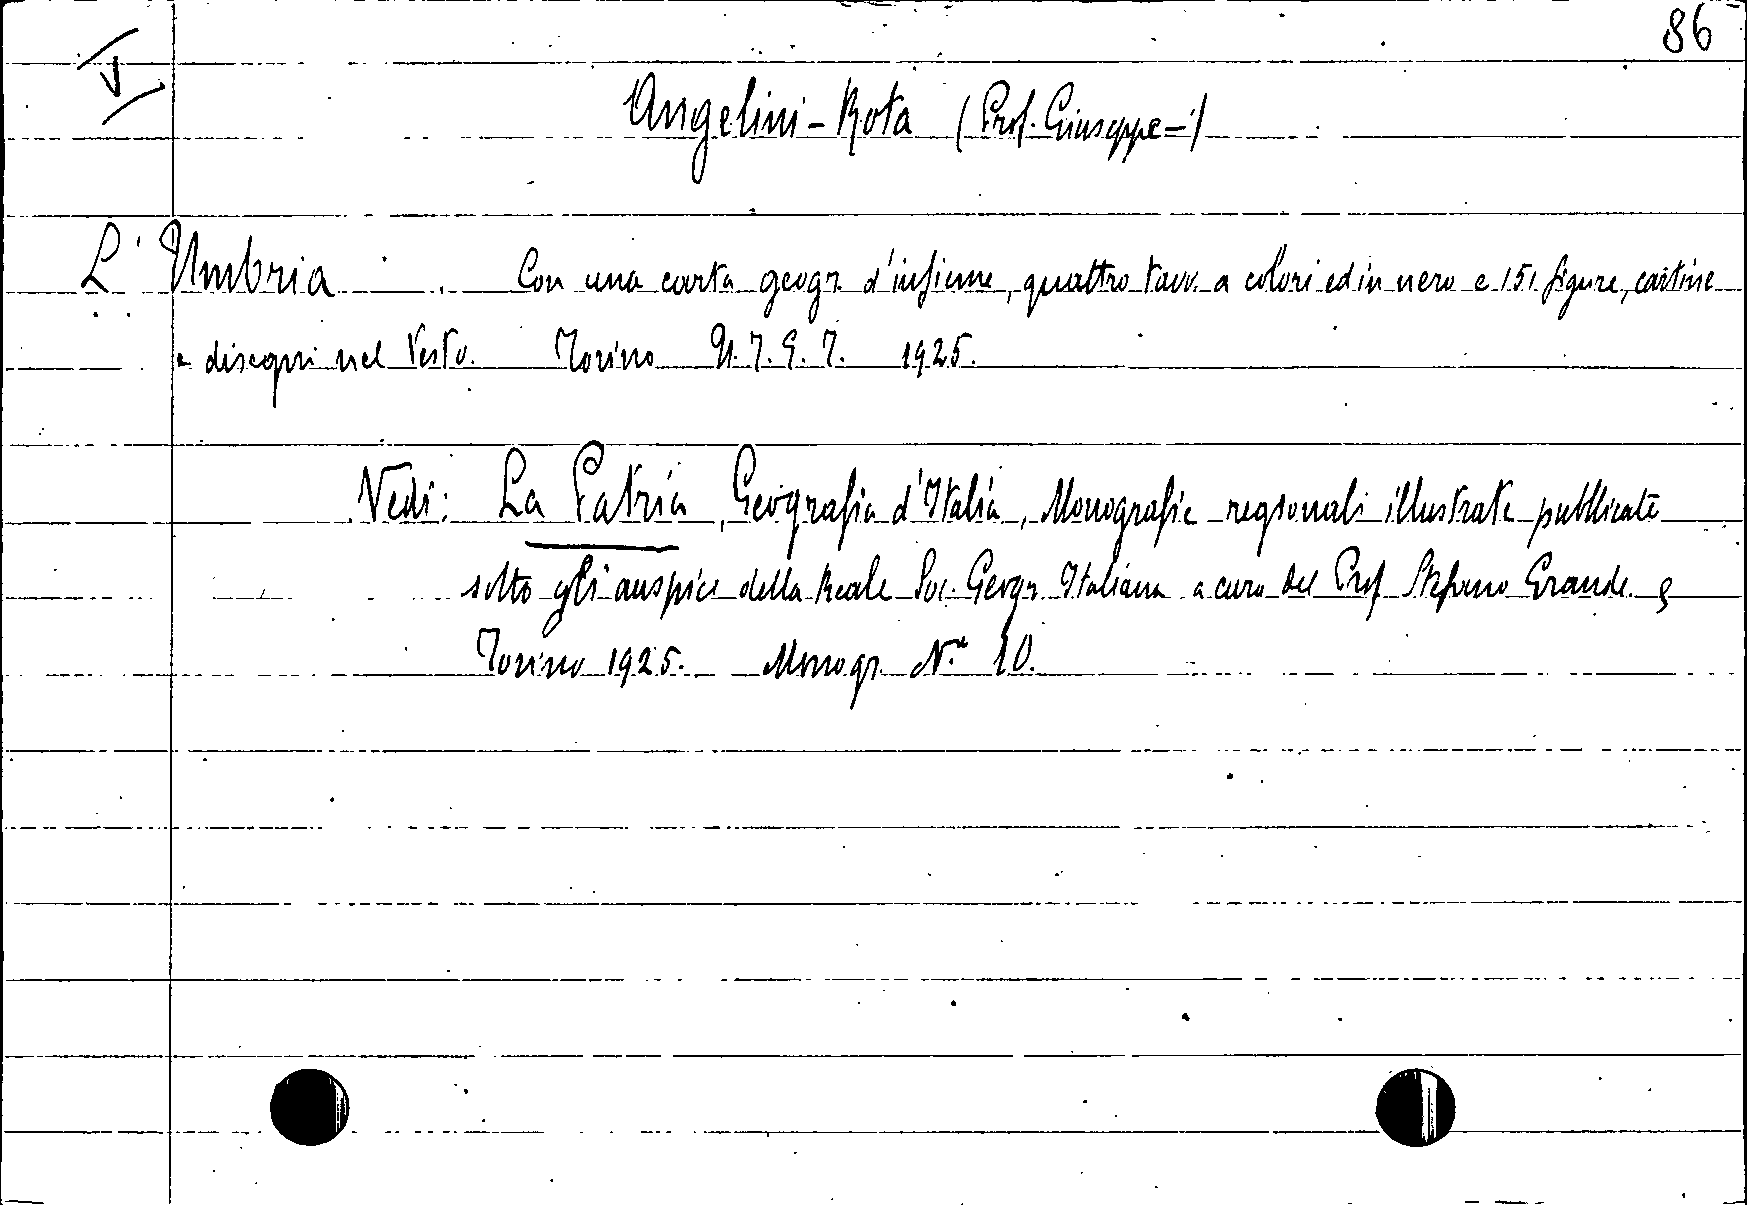 86
V
Angelini-Rota (Prof. Giuseppe-)
L'Umbria. Con una carta geogr. d'insieme, quattro tavv. a colori ed in nero e 151 figure, cartine
e disegni nel testo. Torino U.T.E.T. 1925.
Vedi: La Patria, Geografia d'Italia, Monografie regionali illustrate pubblicate
sotto gli auspici della Reale Soc. Geogr. Italiana a cura del Prof. Stefano Grande.
Torino 1925. Monogr. N.º 10.